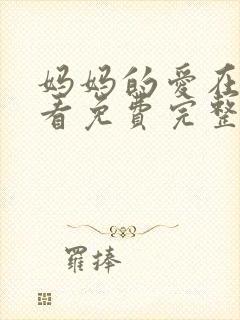 妈妈的爱在
看免费完整
罗捧